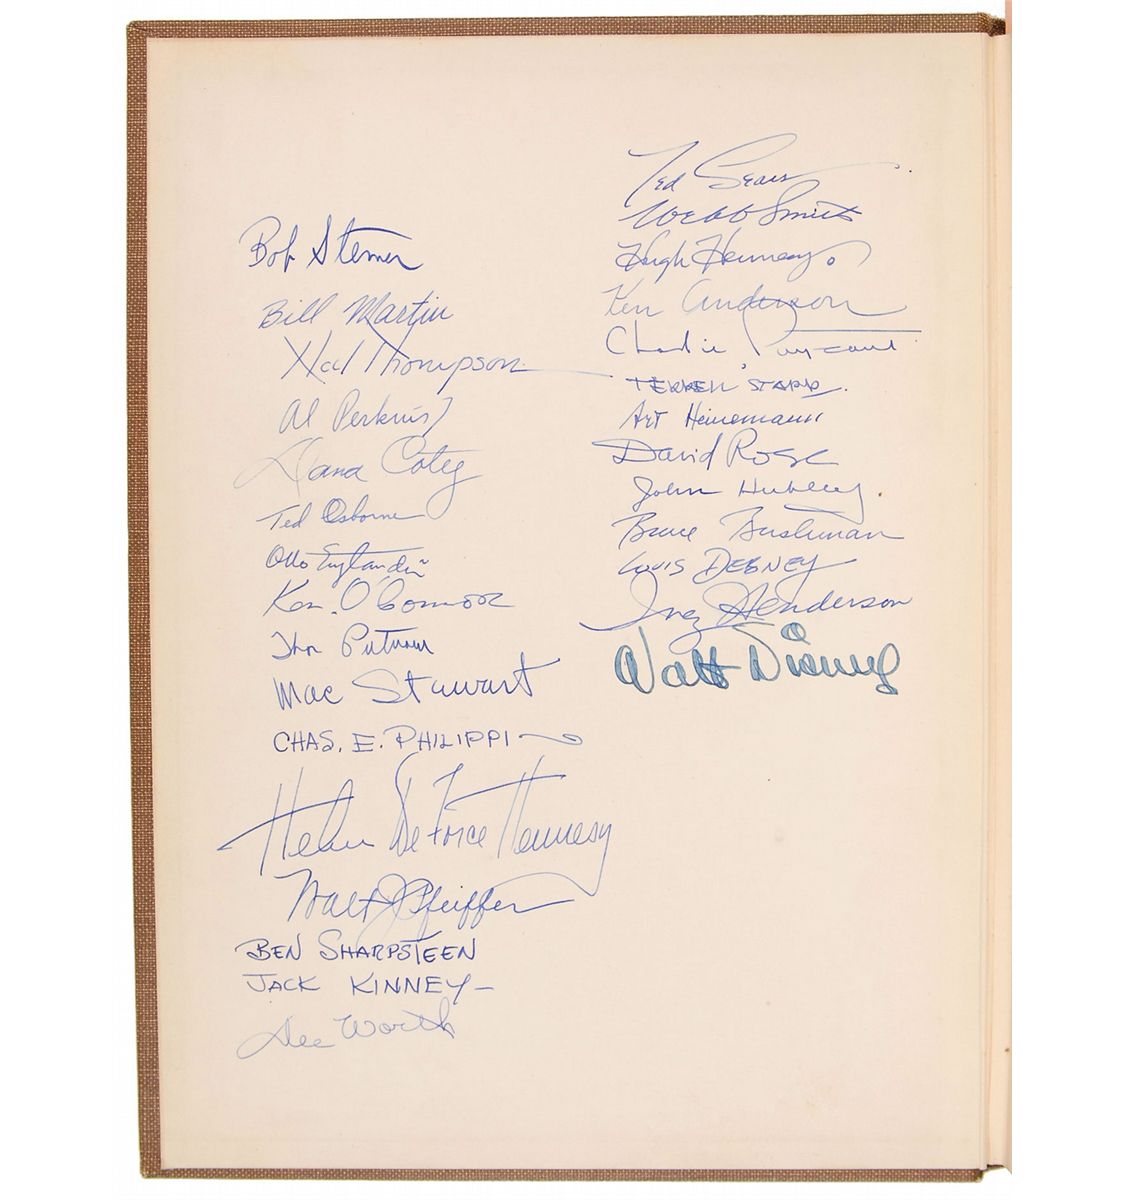 Bob Sterner
Bill Martin
Hal Thompson
Al Perkins
Dana Coty
Ted Osborne
Otto Englander
Ken. O'Connor
Thor Putnam
Mac Stewart
CHAS. E. PHILIPPI
Helen De Force Hennesy
Walt J Pfeiffer
BEN SHARPSTEEN
JACK KINNEY -
Dee Worth
Ted Sears
Webb Smith
Hugh Hennesy.
Ken Anderson
Charlie Payzant
TERRELL STAPP.
Art Heinemann
David Rose
John Hubley
Bruce Bushman
LOUIS DEBNEY
Inez Henderson
Walt Disney